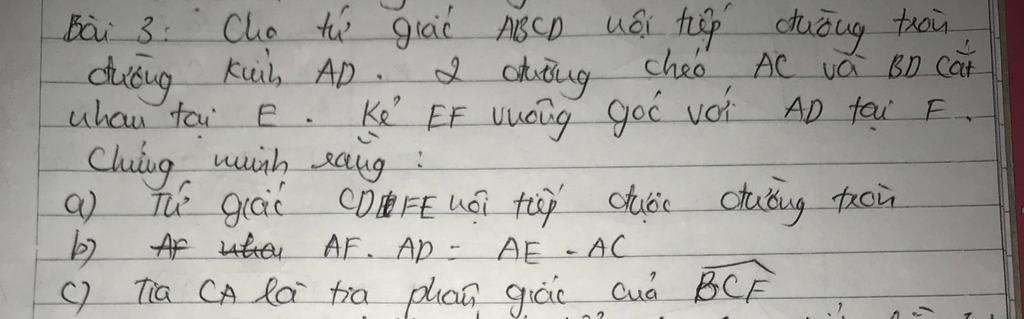 Bài 3: Cho tứ giác ABCD nội tiếp đường tròn
đường kính AD. 2 đường chéo AC và BD cắt
nhau tại E. Kẻ EF vuông góc với AD tại F.
Chứng minh rằng:
a) Tứ giác CDFE nội tiếp được đường tròn
b) AF. AD = AE - AC
c) Tia CA là tia phân giác của BCF